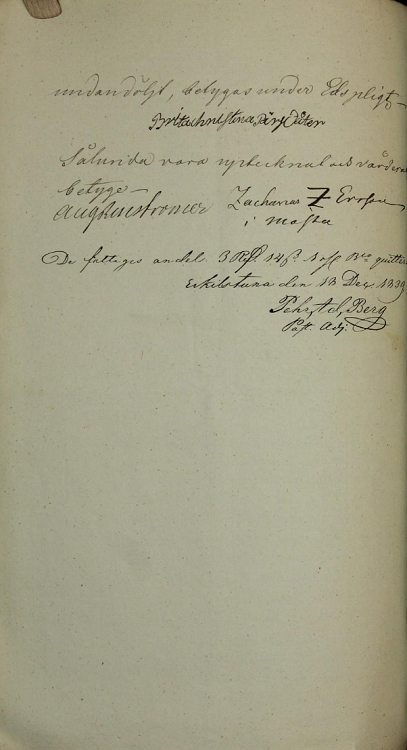 undandöljt, betygas under Eds pligt,
Brita Christina Pärs Låter
Sålunda vara uptecknat och värderat
betyge
Aug Henstromer Zacharias Z Ersson
i Mosta
De fattiges andel 3 Rd. 14 s. Bco quitteras
Eskilstuna den 12 Dec. 1839
Pehr Ad. Berg
Past. Adj.